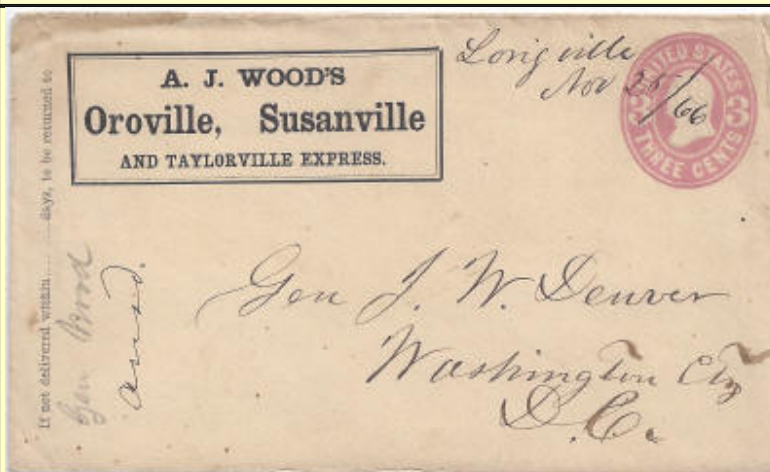 A. J. WOOD'S
Oroville, Susanville
AND TAYLORVILLE EXPRESS.
Longville
Nov 25/66
UNITED STATES
3 3
THREE CENTS
If not delivered within...........days, to be returned to
Gen
ansd.
Gen J. W. Denver
Washington City
D.C.